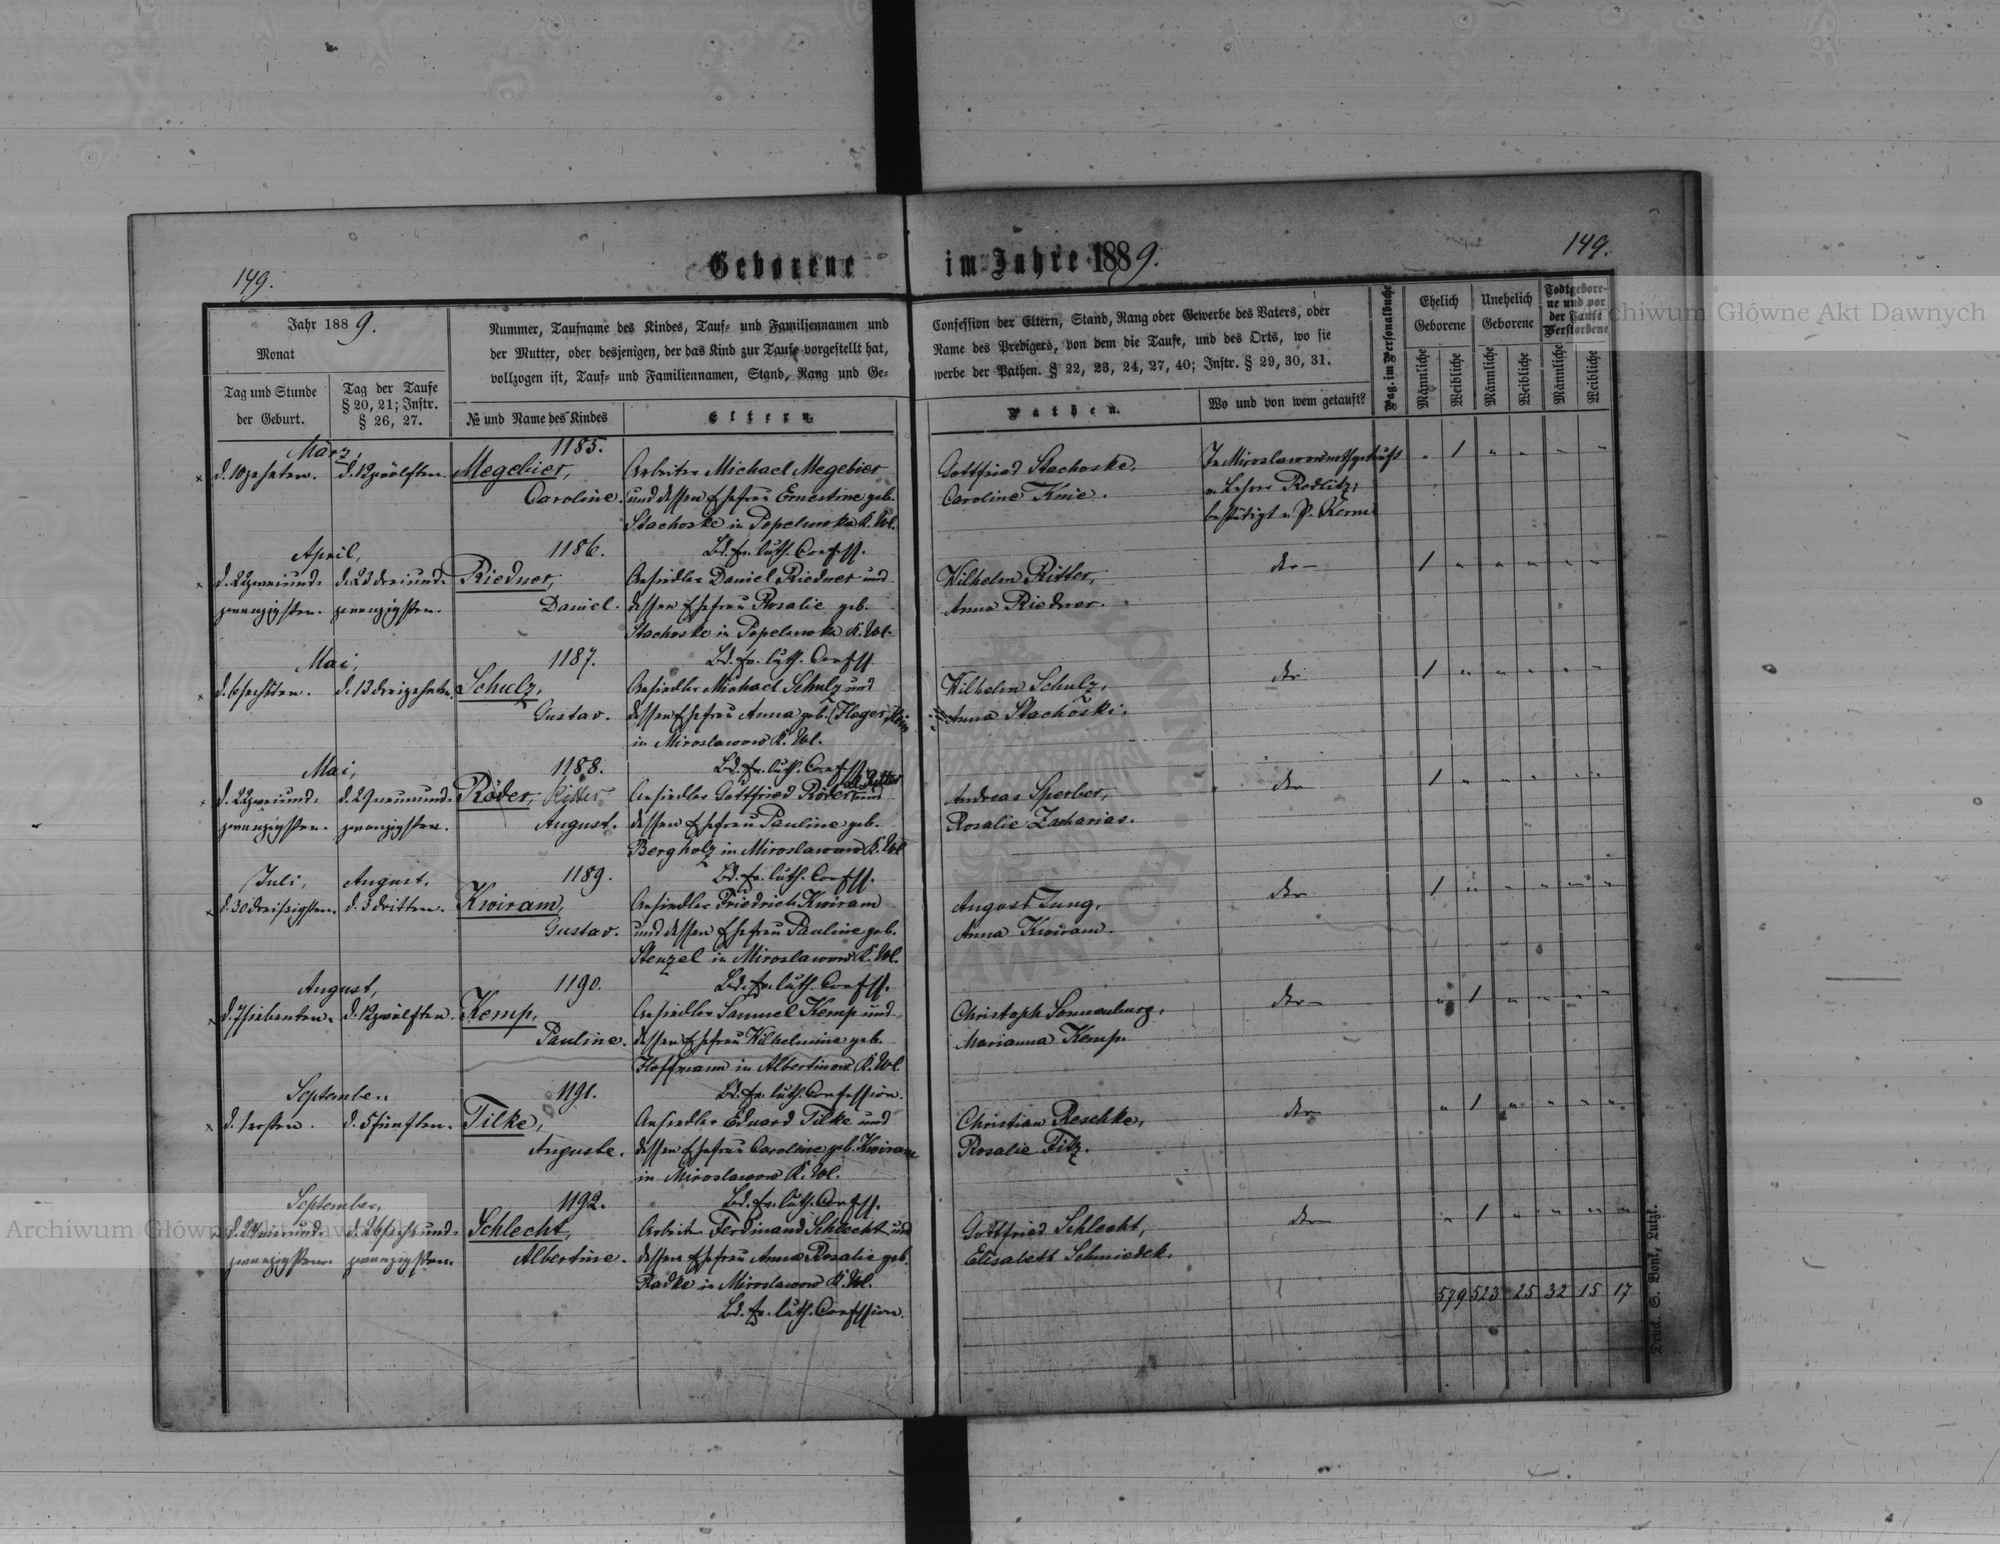 149.
Geborene im Jahre 1889.
149.
Jahr 1889.
Monat
Tag und Stunde
der Geburt.
Tag der Taufe
§ 20, 21; Instr.
§ 26, 27.
Nummer, Taufname des Kindes, Tauf- und Familiennamen und
der Mutter, oder desjenigen, der das Kind zur Taufe vorgestellt hat,
vollzogen ist, Tauf- und Familiennamen, Stand, Rang und Ge-
№ und Name des Kindes
Eltern.
Confession der Eltern, Stand, Rang oder Gewerbe des Vaters, oder
Name des Predigers, von dem die Taufe, und des Orts, wo sie
werbe der Pathen. § 22, 23, 24, 27, 40; Instr. § 29, 30, 31.
Pathen.
Wo und von wem getauft?
Pag. im Personalbuche
Ehelich
Geborene
Unehelich
Geborene
Todtgebore-
ne und vor
der Taufe
Verstorbene
Männliche
Weibliche
Männliche
Weibliche
Männliche
Weibliche
März,
1185.
d. 10 zehnten. d. 12 zwölften. Megebier, Arbeiter Michael Megebier Gottfried Stachoske, In Miroslawow nothgetauft " 1 " " " "
Caroline. und dessen Ehefrau Ernestine geb. Caroline Knie. v. Lehrer Rodlitz,
Stachoske in Popelewska K. Wl. bestätigt v. P. Kerm
April, 1186. Bd. ev. luth. Confess.
d. 22 zweiund- d. 23 dreiund- Riedner, Ansiedler Daniel Riedner und Wilhelm Ritter, 1 " " " " "
zwanzigsten. zwanzigsten. Daniel. dessen Ehefrau Rosalie geb. Anna Riedner.
Stachoske in Popelewska K. Wl.
Mai, 1187. Bd. ev. luth. Confess.
d. 6 sechsten. d. 13 dreizehnten. Schulz, Ansiedler Michael Schulz und Wilhelm Schulz, 1 " " " " "
Gustav. dessen Ehefrau Anna geb. Anna Stachoski.
in Miroslawow K. Wl.
Mai, 1188. Bd. ev. luth. Confess.
d. 22 zweiund- d. 29 neunund- Röder, Ritter Ansiedler Gottfried Röder Ritter und Andreas Sperber, 1 " " " " "
zwanzigsten. zwanzigsten. August. dessen Ehefrau Pauline geb. Rosalie Zacharias.
Bergholz in Miroslawow K. Wl.
Juli, August, 1189. Bd. ev. luth. Confess.
d. 30 dreißigsten. d. 3 dritten. Kwiram, Ansiedler Friedrich Kwiram August Jung, 1 " " " " "
Gustav. und dessen Ehefrau Pauline geb. Anna Kwiram.
Stenzel in Miroslawow K. Wl.
August, 1190. Bd. ev. luth. Confess.
d. 7 siebenten. d. 12 zwölften. Kemp, Ansiedler Samuel Kemp und Christoph Sonnenburg, " 1 " " " "
Pauline. dessen Ehefrau Wilhelmine geb. Marianna Kemp.
Hoffmann in Albertinow K. Wl.
September 1191. Bd. ev. luth. Confession.
d. 1 ersten. d. 5 fünften. Tilke, Ansiedler Eduard Tilke und Christian Reschke, " 1 " " " "
Auguste. dessen Ehefrau Caroline geb. Kwiram Rosalie Titz.
in Miroslawow K. Wl.
September, 1192. Bd. ev. luth. Confess.
d. 24 vierund- d. 26 sechsund- Schlecht, Arbeiter Ferdinand Schlecht und Gottfried Schlecht, " 1 " " " "
zwanzigsten. zwanzigsten. Albertine. dessen Ehefrau Anna Rosalie geb. Elisabeth Schmiedek.
Radke in Miroslawow K. Wl.
579 523 25 32 15 17
Bd. ev. luth. Confession.
Archiwum Główne Akt Dawnych
Archiwum Główne Akt Dawnych